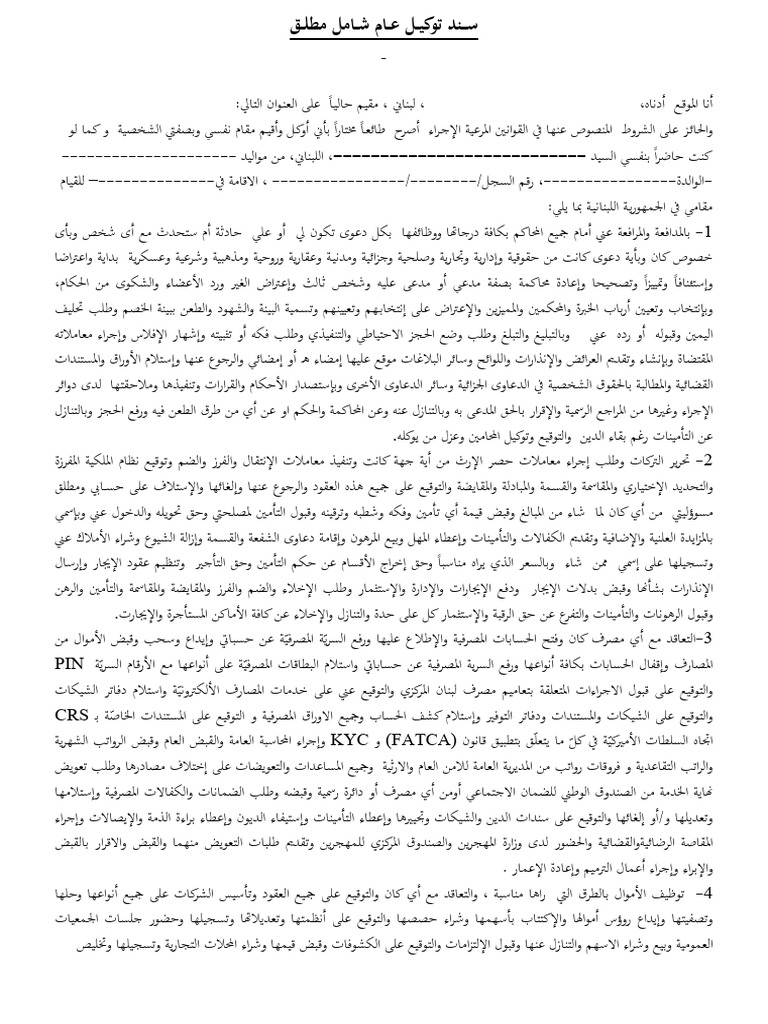 سـند توكيـل عـام شـامل مطلـق
-
أنا الموقع أدناه، ، لبناني ، مقيم حالياً على العنوان التالي:
والحائز على الشروط المنصوص عنها في القوانين المرعية الإجراء أصرح طائعاً مختاراً بأني أوكل وأقيم مقام نفسي وبصفتي الشخصية و كما لو
كنت حاضراً بنفسي السيد ---------------------------، اللبناني، من مواليد ---------------------
-الوالدة----------------، رقم السجل/--------/---------------- ، الاقامة في--------------– للقيام
مقامي في الجمهورية اللبنانية بما يلي:
1- بالمدافعة والمرافعة عني أمام جميع المحاكم بكافة درجاتها ووظائفها بكل دعوى تكون لي أو علي حادثة أم ستحدث مع أى شخص وبأى
خصوص كان وبأية دعوى كانت من حقوقية وإدارية وتجارية وصلحية وجزائية ومدنية وعقارية وروحية ومذهبية وشرعية وعسكرية بداية واعتراضا
وإستئنافاً وتمييزاً وتصحيحا وإعادة محاكمة بصفة مدعي أو مدعى عليه وشخص ثالث وإعتراض الغير ورد الأعضاء والشكوى من الحكام،
وبإنتخاب وتعيين أرباب الخبرة والمحكمين والمميزين والإعتراض على إنتخابهم وتعيينهم وتسمية البينة والشهود والطعن ببينة الخصم وطلب تحليف
اليمين وقبوله أو رده عني وبالتبليغ والتبلغ وطلب وضع الحجز الاحتياطي والتنفيذي وطلب فكه أو تثبيته وإشهار الإفلاس وإجراء معاملاته
المقتضاة وبإنشاء وتقديم العرائض والإنذارات واللوائح وسائر البلاغات موقع عليها إمضاء هـ أو إمضائي والرجوع عنها وإستلام الأوراق والمستندات
القضائية والمطالبة بالحقوق الشخصية في الدعاوى الجزائية وسائر الدعاوى الأخرى وبإستصدار الأحكام والقرارات وتنفيذها وملاحقتها لدى دوائر
الإجراء وغيرها من المراجع الرسمية والإقرار بالحق المدعى به وبالتنازل عنه وعن المحاكمة والحكم او عن أي من طرق الطعن فيه ورفع الحجز وبالتنازل
عن التأمينات رغم بقاء الدين والتوقيع وتوكيل المحامين وعزل من يوكله.
2- تحرير التركات وطلب إجراء معاملات حصر الإرث من أية جهة كانت وتنفيذ معاملات الإنتقال والفرز والضم وتوقيع نظام الملكية المفرزة
والتحديد الإختياري والمقاسمة والقسمة والمبادلة والمقايضة والتوقيع على جميع هذه العقود والرجوع عنها وإلغائها والإستلاف على حسابي ومطلق
مسووليتي من أي كان لما شاء من المبالغ وقبض قيمة أي تأمين وفكه وشطبه وترقينه وقبول التأمين لمصلحتي وحق تحويله والدخول عني وبإسمي
بالمزايدة العلنية والإضافية وتقديم الكفالات والتأمينات وإعطاء المهل وبيع المرهون وإقامة دعاوى الشفعة والقسمة وإزالة الشيوع وشراء الأملاك عني
وتسجيلها على إسمي ممن شاء وبالسعر الذي يراه مناسباً وحق إخراج الأقسام عن حكم التأمين وحق التأجير وتنظيم عقود الإيجار وإرسال
الإنذارات بشأنها وقبض بدلات الإيجار ودفع الإيجارات والإدارة والإستثمار وطلب الإخلاء والضم والفرز والمقايضة والمقاسمة والتأمين والرهن
وقبول الرهونات والتأمينات والتفرع عن حق الرقبة والإستثمار كل على حدة والتنازل والإخلاء عن كافة الأماكن المستأجرة والإيجارت.
3-التعاقد مع أي مصرف كان وفتح الحسابات المصرفية والإطلاع عليها ورفع السريّة المصرفيّة عن حسباتي وإيداع وسحب وقبض الأموال من
المصارف وإقفال الحسابات بكافة أنواعها ورفع السرية المصرفية عن حساباتي واستلام البطاقات المصرفيّة على أنواعها مع الأرقام السريّة PIN
والتوقيع على قبول الاجراءات المتعلقة بتعاميم مصرف لبنان المركزي والتوقيع عني على خدمات المصارف الألكترونيّة واستلام دفاتر الشيكات
والتوقيع على الشيكات والمستندات ودفاتر التوفير وإستلام كشف الحساب وجميع الاوراق المصرفية و التوقيع على المستندات الخاصّة بـ CRS
اتجاه السلطات الأميركيّة في كلّ ما يتعلّق بتطبيق قانون (FATCA) و KYC وإجراء المحاسبة العامة والقبض العام وقبض الرواتب الشهرية
والراتب التقاعدية و فروقات رواتب من المديرية العامة للامن العام والارثية وجميع المساعدات والتعويضات على إختلاف مصادرها وطلب تعويض
نهاية الخدمة من الصندوق الوطني للضمان الاجتماعي أومن أي مصرف أو دائرة رسمية وقبضه وطلب الضمانات والكفالات المصرفية وإستلامها
وتعديلها و/أو إلغائها والتوقيع على سندات الدين والشيكات وتجييرها وإعطاء التأمينات وإستيفاء الديون وإعطاء براءة الذمة والإيصالات وإجراء
المقاصة الرضائيةوالقضائية والحضور لدى وزارة المهجرين والصندوق المركزي للمهجرين وتقديم طلبات التعويض منهما والقبض والاقرار بالقبض
والإبراء وإجراء أعمال الترميم وإعادة الإعمار .
4- توظيف الأموال بالطرق التي راها مناسبة ، والتعاقد مع أي كان والتوقيع على جميع العقود وتأسيس الشركات على جميع أنواعها وحلها
وتصفيتها وإيداع رؤوس أموالها والإكتتاب بأسهمها وشراء حصصها والتوقيع على أنظمتها وتعديلاتها وتسجيلها وحضور جلسات الجمعيات
العمومية وبيع وشراء الاسهم والتنازل عنها وقبول الإلتزامات والتوقيع على الكشوفات وقبض قيمها وشراء المحلات التجارية وتسجيلها وتخليص